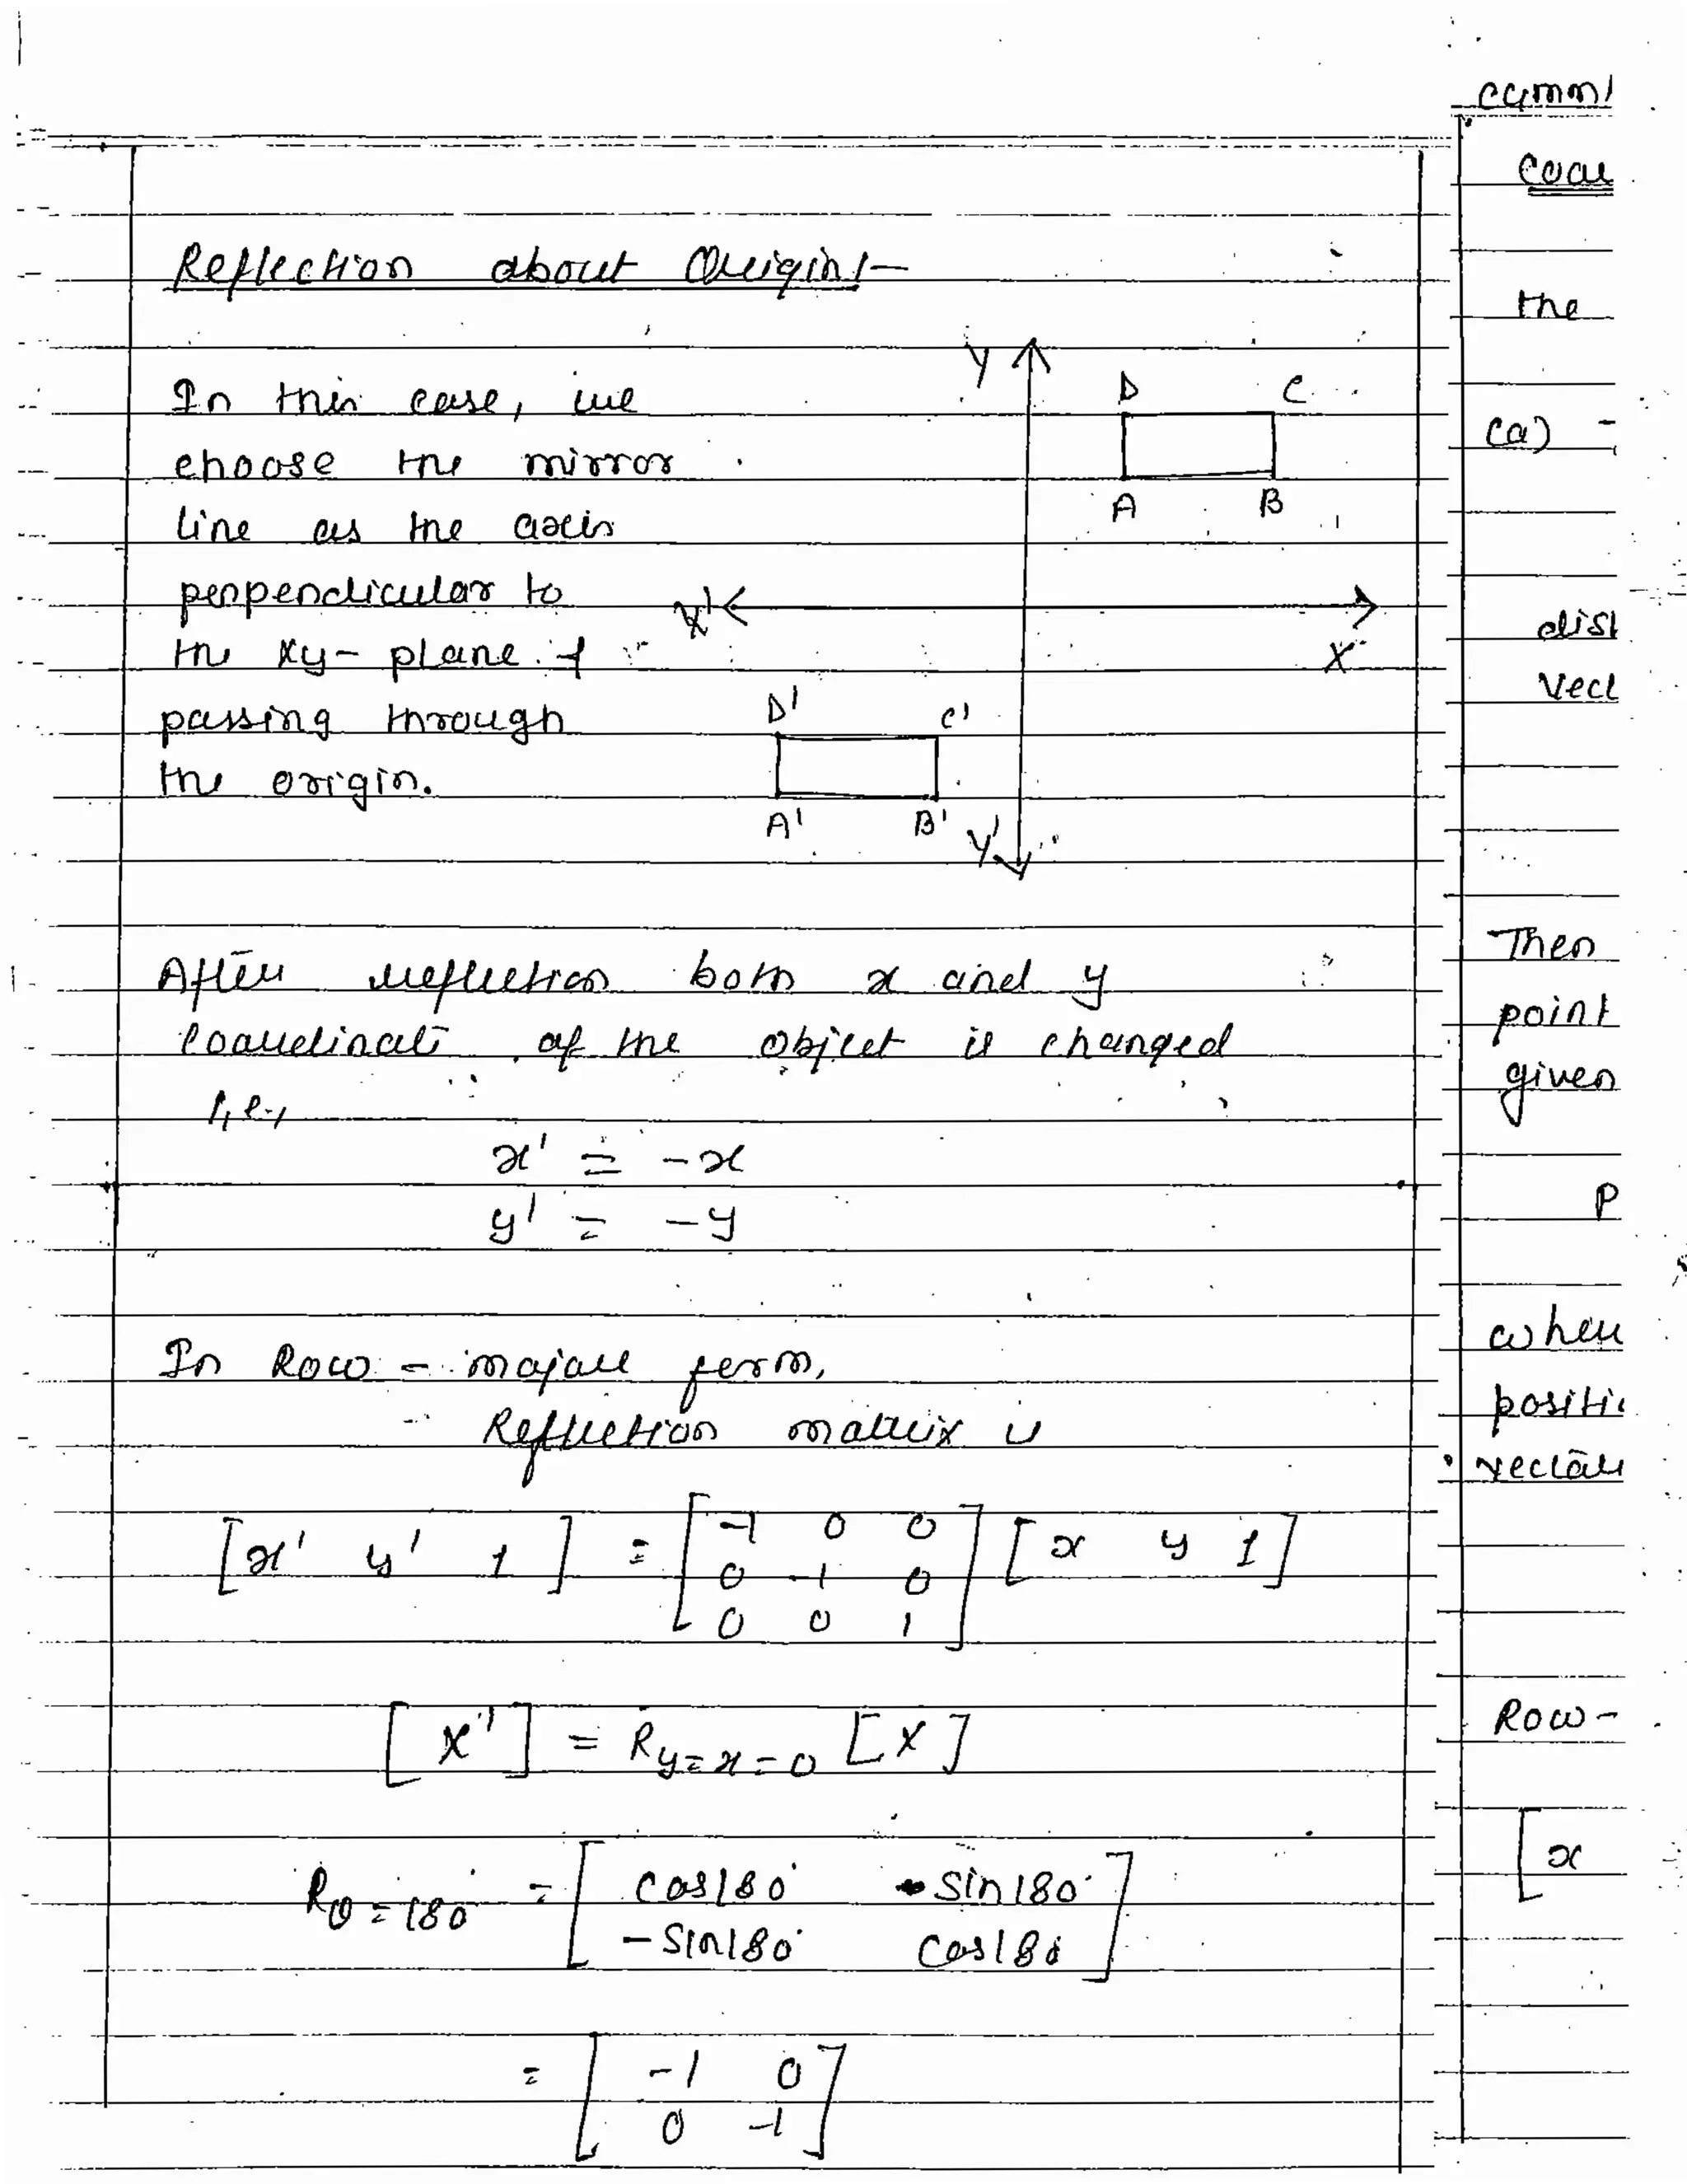 Reflection about Origin :-
In this case, we
choose the mirror
line as the axis
perpendicular to
the xy- plane &
passing through
the origin.
Y
D C
A B
X' X
D' C'
A' B'
Y'
After reflection both x and y
coordinate of the object is changed
i.e.,
x' = -x
y' = -y
In Row - major form,
Reflection matrix is
[x' y' 1] = [-1 0 0
0 -1 0
0 0 1] [x y 1]
[X'] = R y=x=0 [X]
Rθ=180° = [cos180° sin180°
-sin180° cos180°]
= [-1 0
0 -1]
the
(a)
Then
point
given
P
Row-
[x